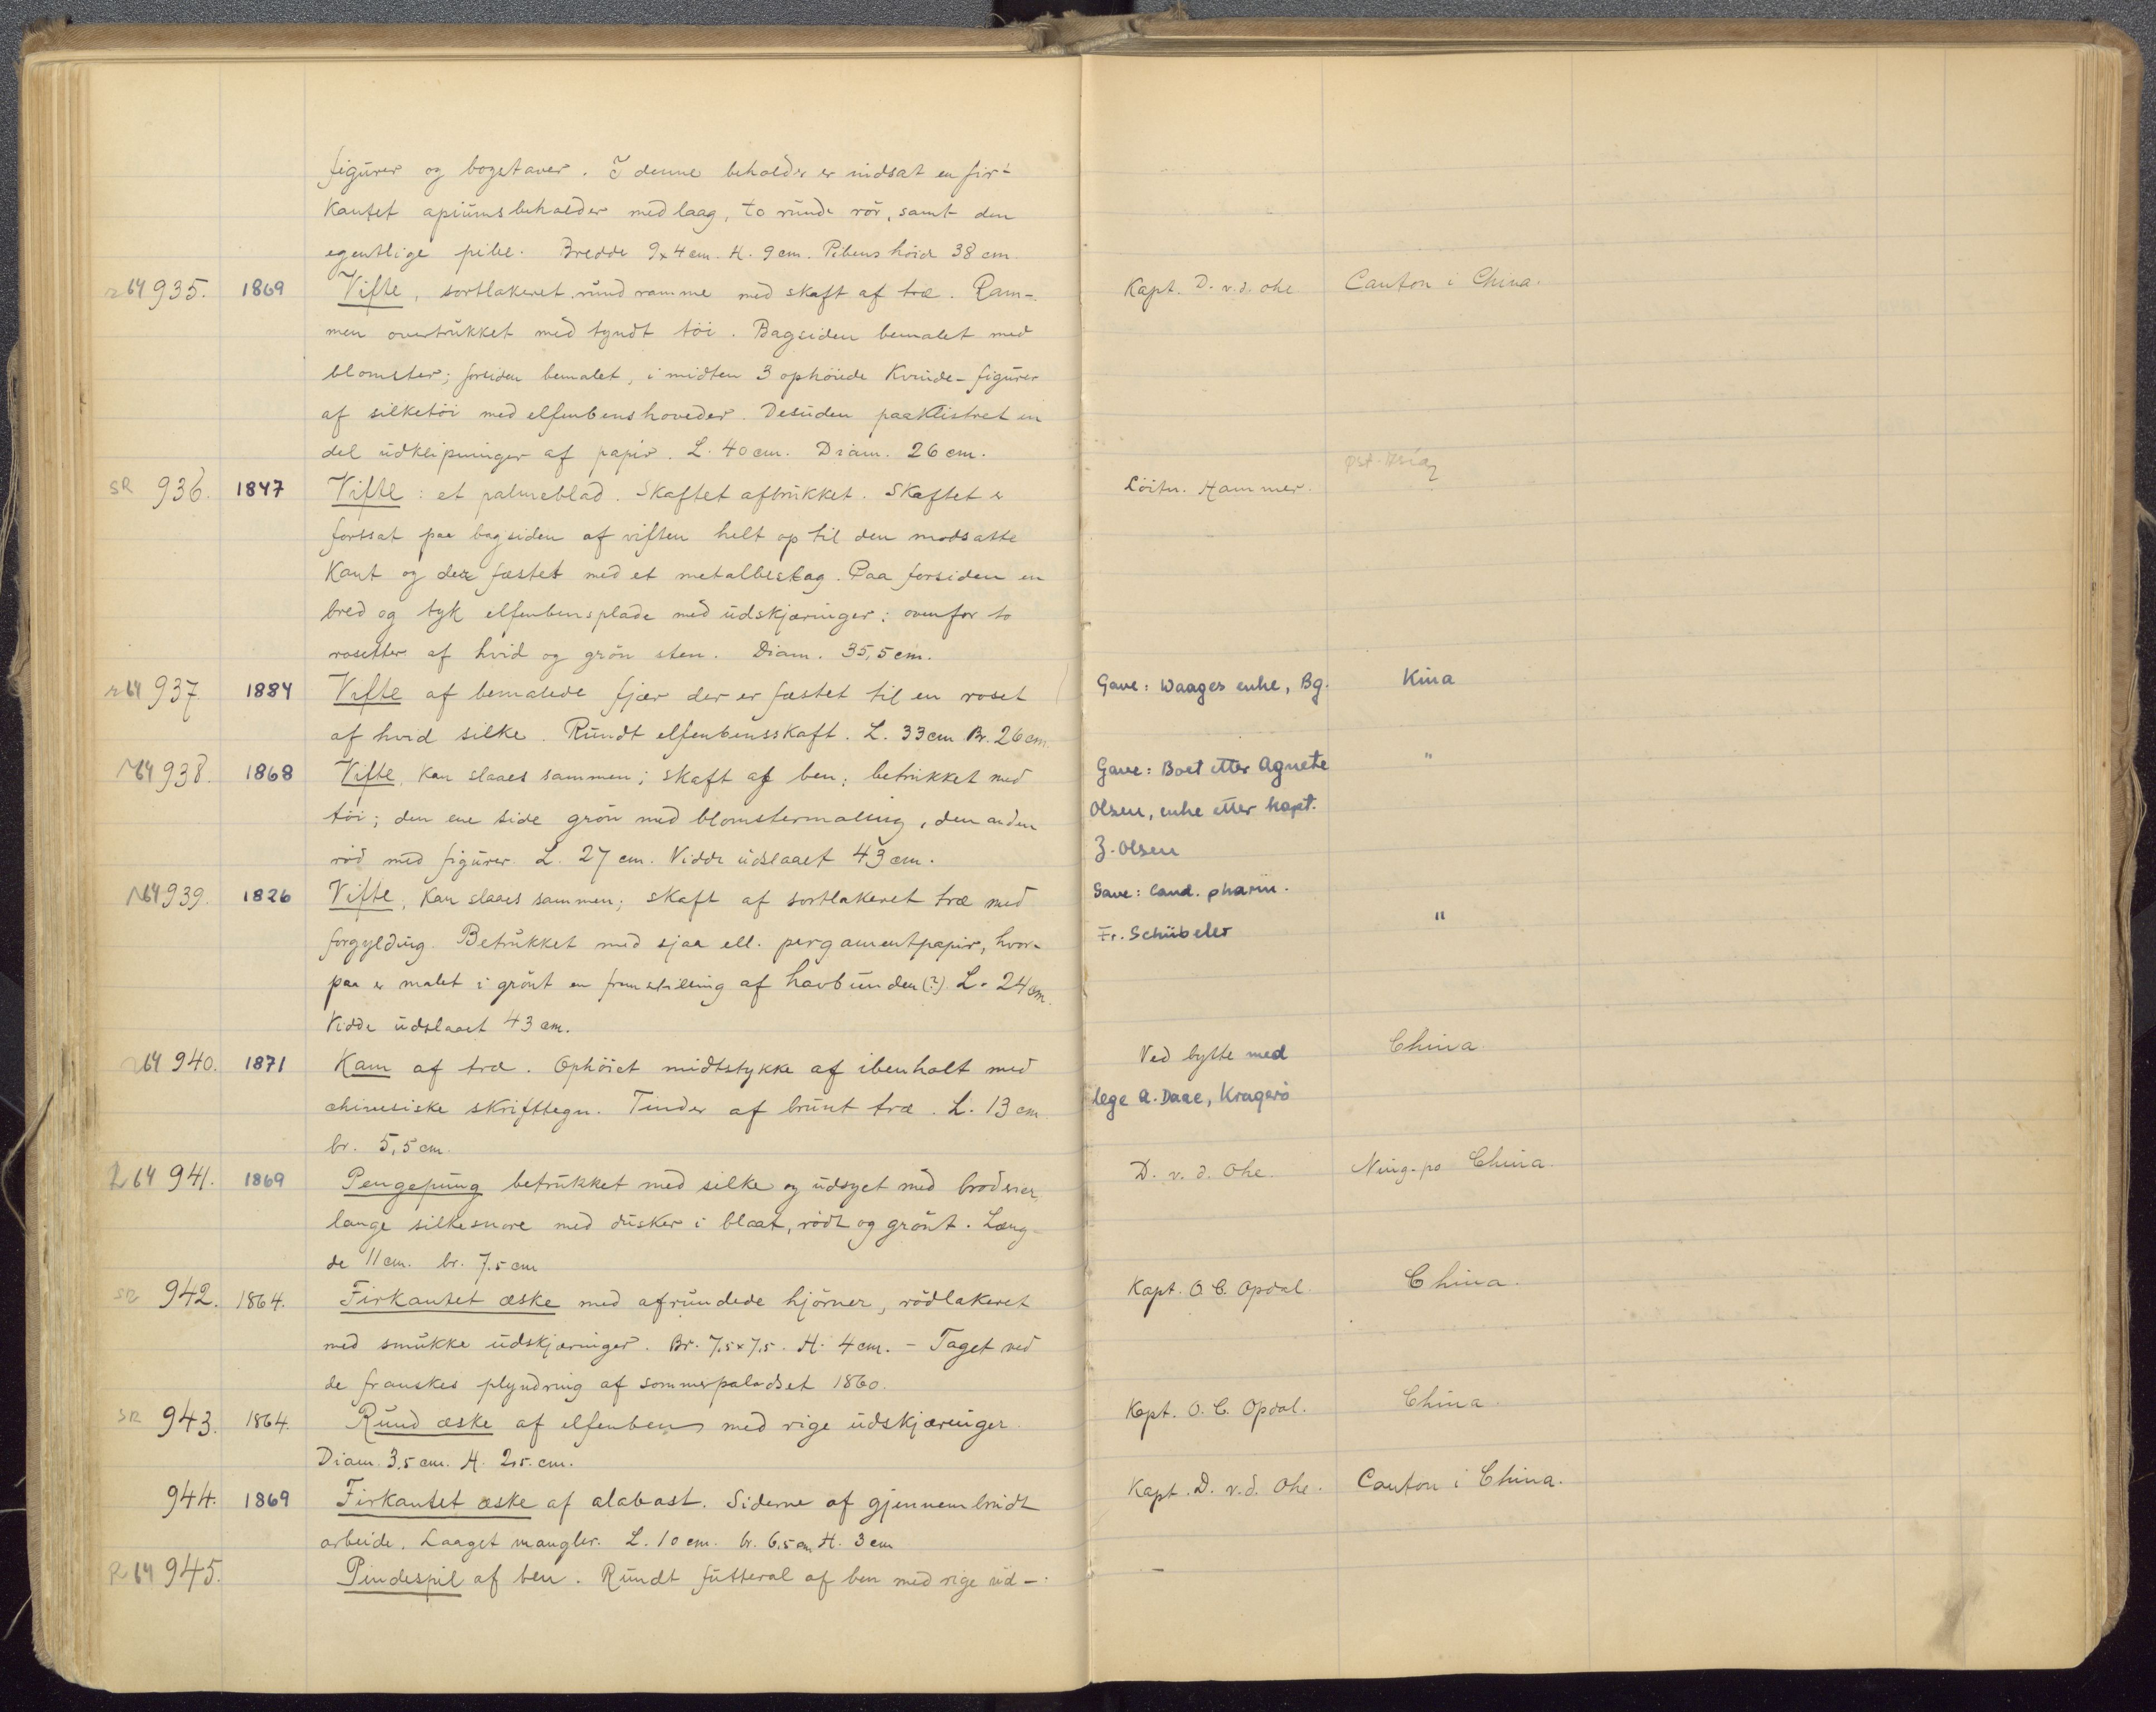 figurer og bogstaver. I denne beholder er indsat en fir-
kantet opiumsbeholder med laag, to runde rör, samt den
egentlige pibe. Bredde 9x4 cm. H. 9 cm. Pibens höide 38 cm.
R64 935. 1869 Vifte, sortlakeret rund ramme med skaft af træ. Ram- Kapt. D. v. d. Ohe Canton i China.
men overtrukket med tyndt töi. Bagsiden bemalet med
blomster; forsiden bemalet, i midten 3 ophöiede Kvinde-figurer
af silketöi med elfenbenshoveder. Desuden paaklistret en
del udklipninger af papir. L. 40 cm. Diam. 26 cm.
SR 936. 1847 Vifte: et palmeblad. Skaftet afbrukket. Skaftet er Löitn. Hammer. Øst-Asia
fortsat paa bagsiden af viften helt op til den modsatte
Kant og der fæstet med et metalbeslag. Paa forsiden en
bred og tyk elfenbensplade med udskjæringer: ovenfor to
rosetter af hvid og grön sten. Diam. 35,5 cm.
R64 937 1884 Vifte af bemalede fjær der er fæstet til en roset Gave: Waages enke, Bg. Kina
af hvid silke. Rundt elfenbensskaft. L. 33 cm Br. 26 cm.
R64 938. 1868 Vifte, Kan slaaes sammen; skaft af ben; betrukket med Gave: Boet etter Agnete "
töi; den ene side grön med blomstermaling, den anden Olsen, enke etter kapt.
röd med figurer. L. 27 cm. Vidde udslaaet 43 cm. Z. Olsen
R64 939. 1826 Vifte, Kan slaaes sammen; skaft af sortlakeret træ med Gave: Cand. pharm.
forgylding. Betrukket med sjaa ell. pergamentpapir, hvor- Fr. Schübeler "
paa er malet i grönt en fremstilling af havbunden (?) L. 24 cm.
Vidde udslaaet 43 cm.
R64 940. 1871 Kam af træ. Ophöiet midtstykke af ibenholt med Ved bytte med China
chinesiske skrifttegn. Tinder af brunt træ. L. 13 cm. lege A. Daae, Kragerø
br. 5,5 cm.
R64 941. 1869 Pengepung betrukket med silke og udsyet med broderier, D. v. d. Ohe. Ning-po China.
lange silkesnore med dusker i blaat, rödt og grönt. Læng-
de 11 cm. br. 7.5 cm
SR 942. 1864. Firkantet æske med afrundede hjörner, rödlakeret Kapt. O. C. Opdal. China.
med smukke udskjæringer. Br. 7,5 x 7,5. H. 4 cm. - Taget ved
de franskes plyndring af sommerpaladset 1860.
SR 943. 1864. Rund æske af elfenben med rige udskjæringer. Kapt. O. C. Opdal. China.
Diam. 3,5 cm. H. 2,5. cm.
944. 1869 Firkantet æske af alabast. Siderne af gjennembrudt Kapt. D. v. d. Ohe. Canton i China.
arbeide. Laaget mangler. L. 10 cm. br. 6,5 cm H. 3 cm
R64 945. Pindespil af ben. Rundt futteral af ben med rige ud-: -